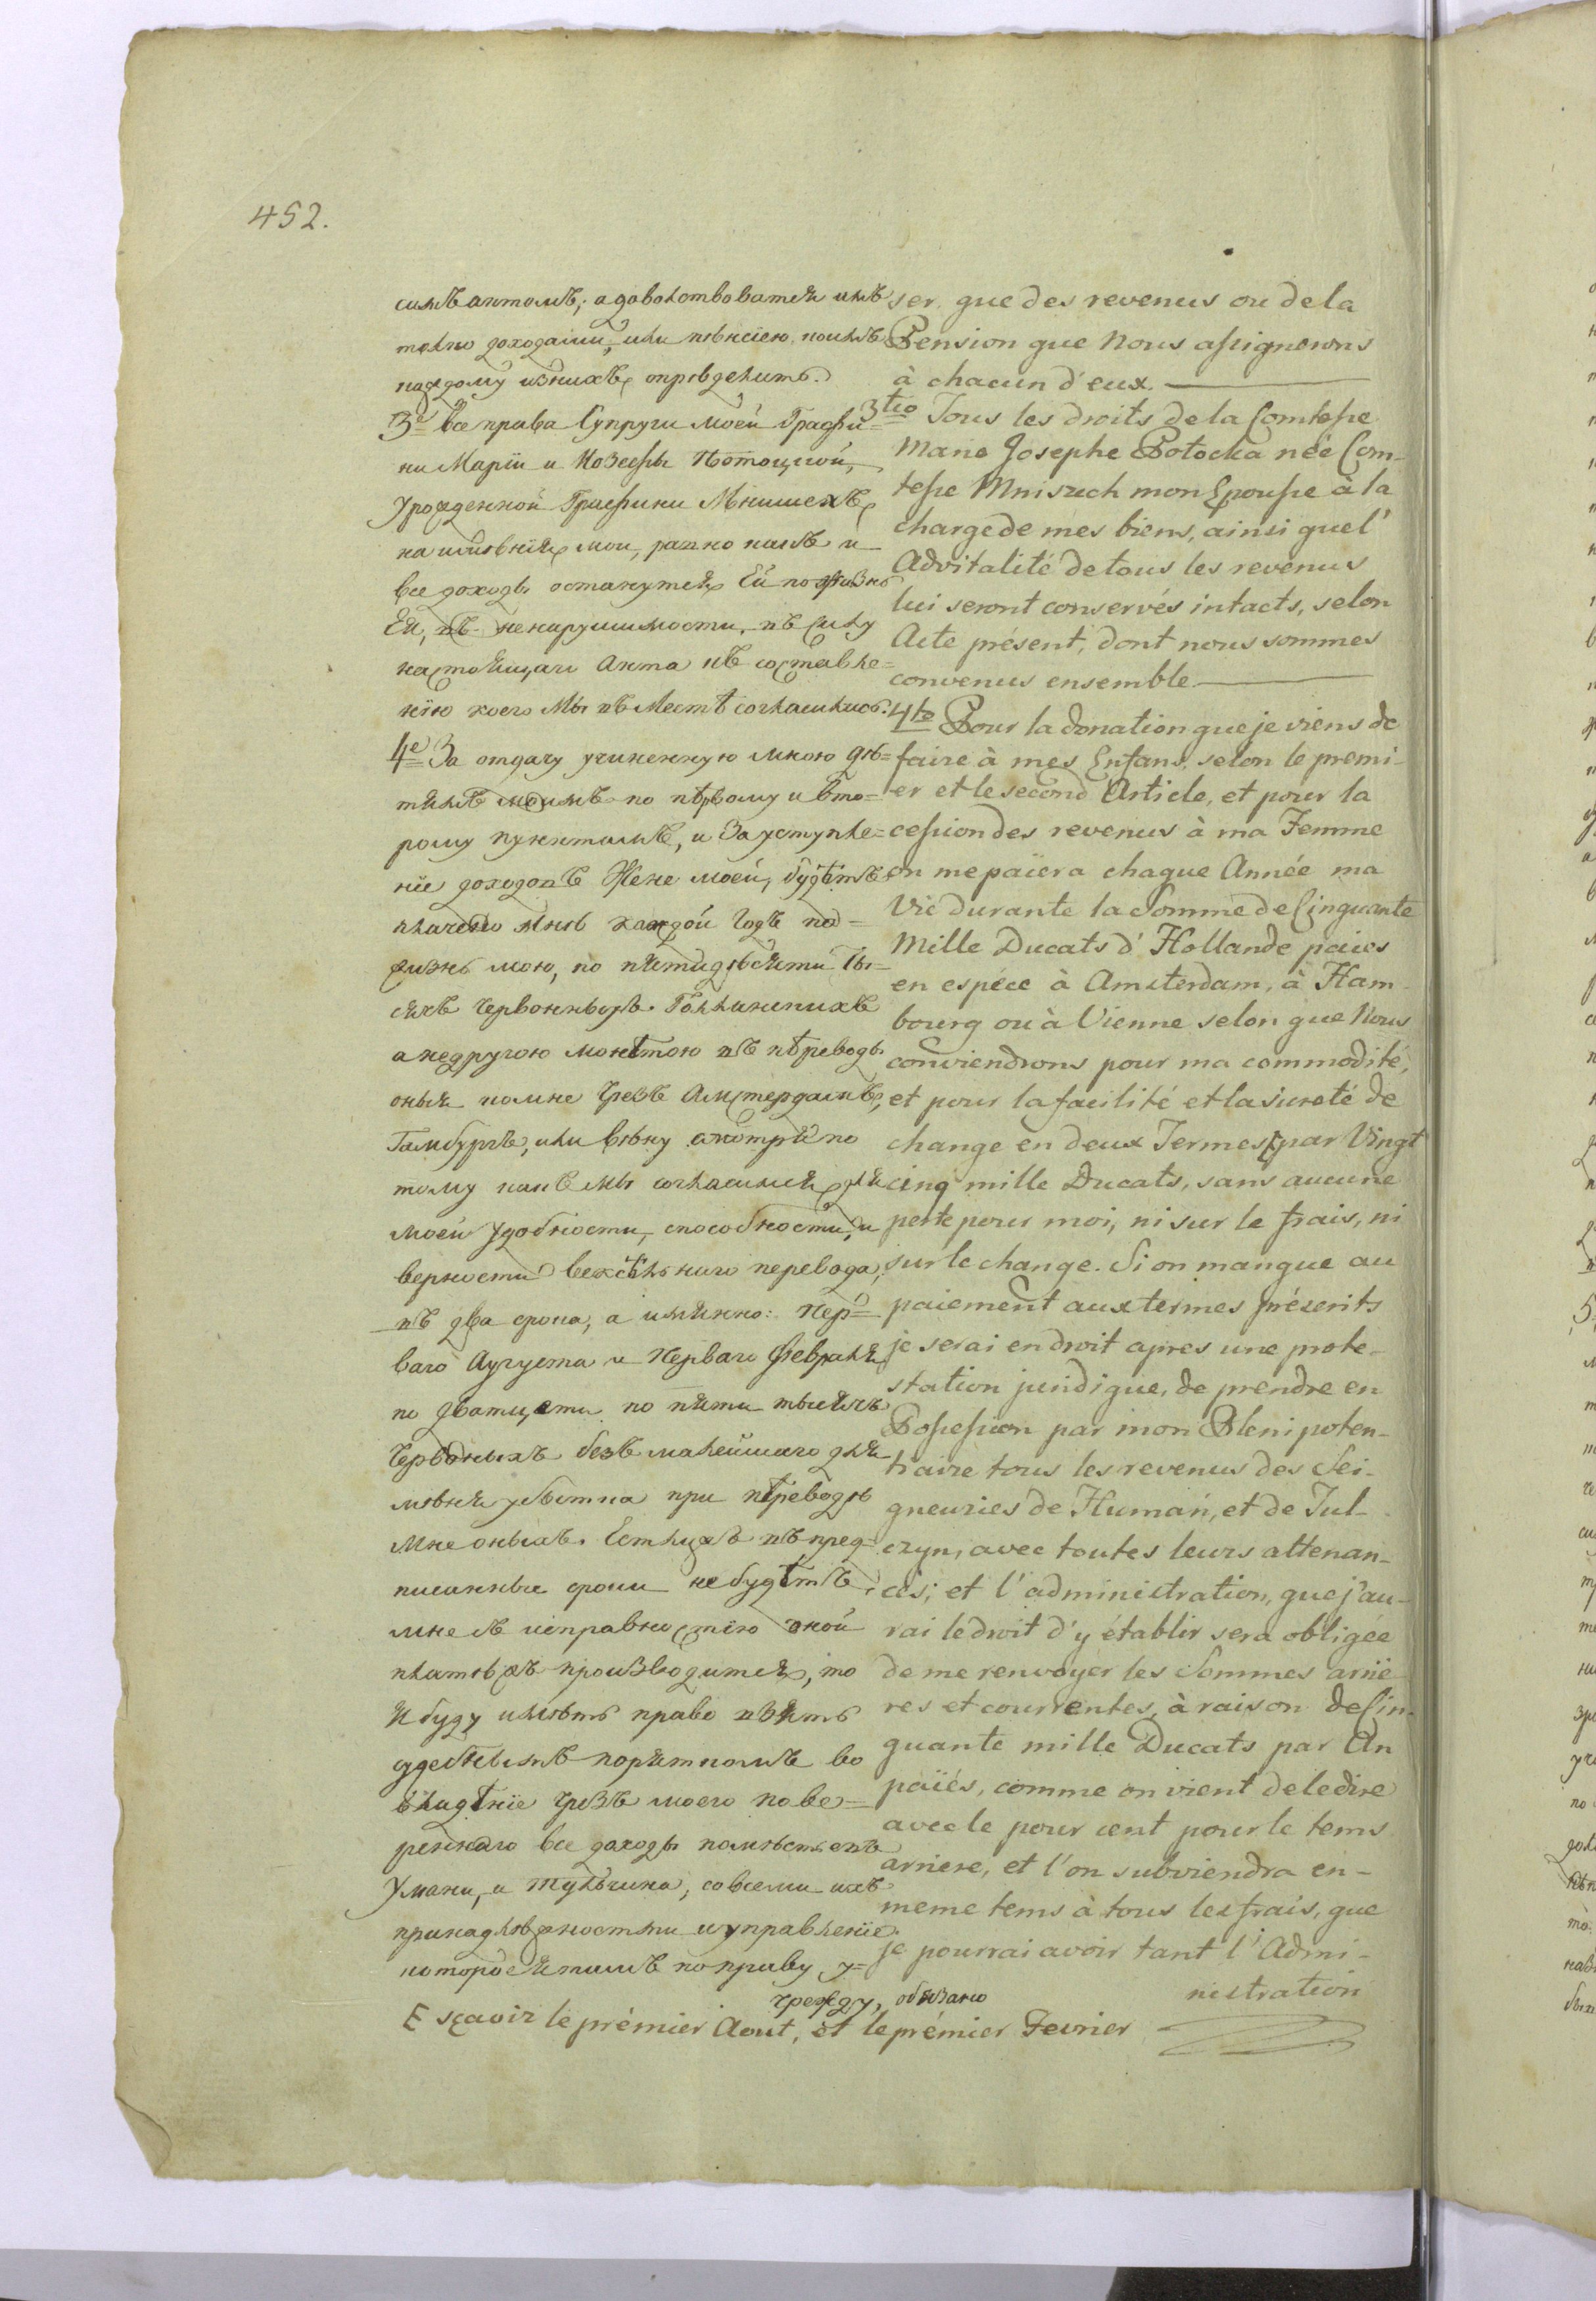 452.
симъ актомъ; а довольствоватся имъ
токмо доходами, или пѣнсіею, коимъ
каждому изнихъ опрѣделитъ.
3е все права Супруги моей Графи=
ни Маріи и Иозефы Потоцкой,
Урожденной Графини Мнишехъ,
на имѣнія мои, равно какъ и
все доходы останутся Ей по жизнь
Ея, въ ненарушимости, въ силу
настоящаго Акта въ составле=
нію коего Мы въместѣ согласились.
4е За отдачу учиненную мною дѣ=
тямъ моимъ по пѣрвому и вто=
рому пунктамъ, и За уступле=
ніе доходовъ Жене моей, будѣтъ
плачено мнѣ каждой Годъ по
жизнь мою, по пятидѣсяти Ты=
сячъ Червонныхъ Голланскихъ
а недругою монѣтою въ пѣреводъ
оныя комне Чрезъ Амстердамъ,
Гамбургъ, или Вѣну смотря по
тому какъ мы согласимся, для
моей Удобности, способности, и
верности вексѣльнаго перевода,
въ два срока, а имянно: Пер=
ваго Аугуста и Перваго Февраля
по дватцети по пяти тысячъ
Червоныхъ безъ малейшаго для
мѣня убытка при пѣреводѣ
Мне оныхъ. Естлижъ въ пред=
писанные сроки небудѣтъ
мне съ исправностію оной
платѣжъ производится, то
Я буду имѣть право взять
судебнымъ порядкомъ во
владѣніе чрезъ моего пове=
реннаго все доходы помѣстьевъ
Умани, и Тульчина, со всеми ихъ
принадлѣжностьми и управленіе
которое я тамъ по праву у=
чрежду, обязано
ser, que des revenus ou de la
Pension que Nous assignerons
à chacun d'eux.
3tio Tous les droits de la Comtesse
Marie Josephe Potocka née Com-
tesse Mniszech mon Epousse à la
charge de mes biens, ainsi quel'
Advitalité de tous les revenus
lui seront conservés intacts, selon
Acte présent, dont nous sommes
convenus ensemble.
4to Pour la donation que je viens de
faire à mes Enfans, selon le premi-
er et le second Article, et pour la
cession des revenus à ma Femme
on me païera chaque Année ma
Vie durante la Somme de Cinquante
Mille Ducats d'Hollande païes
en espéce à Amsterdam, à Ham-
bourg ou à Vienne selon que Nous
conviendrons pour ma commodité,
et pour la facilité et la sureté de
change en deux Termes E par Vingt
cinq mille Ducats, sans aucune
perte pour moi, ni sur le frais, ni
sur le change. Si on manque au
paiement aux termes préscrits
je serai en droit apres une prote-
station juridique, de prendre en
Possession par mon Plenipoten-
tiaire tous les revenus des Sei-
gneuries de Human, et de Tul-
czyn, avec toutes leurs attenan-
ces; et l'administration, que j'au-
rai le droit d'y établir sera obligée
de me renvoyer les Sommes arriè-
res et courrentes, à raison de Cin-
quante mille Ducats par An
païés, comme on vient de le dire
avec le pour cent pour le tems
arriere, et l'on subviendra en-
meme tems à tous les frais, que
je pourrai avoir tant l'Admi-
nistration
E sçavoir le prémier Aout, et le prémier Fevrier